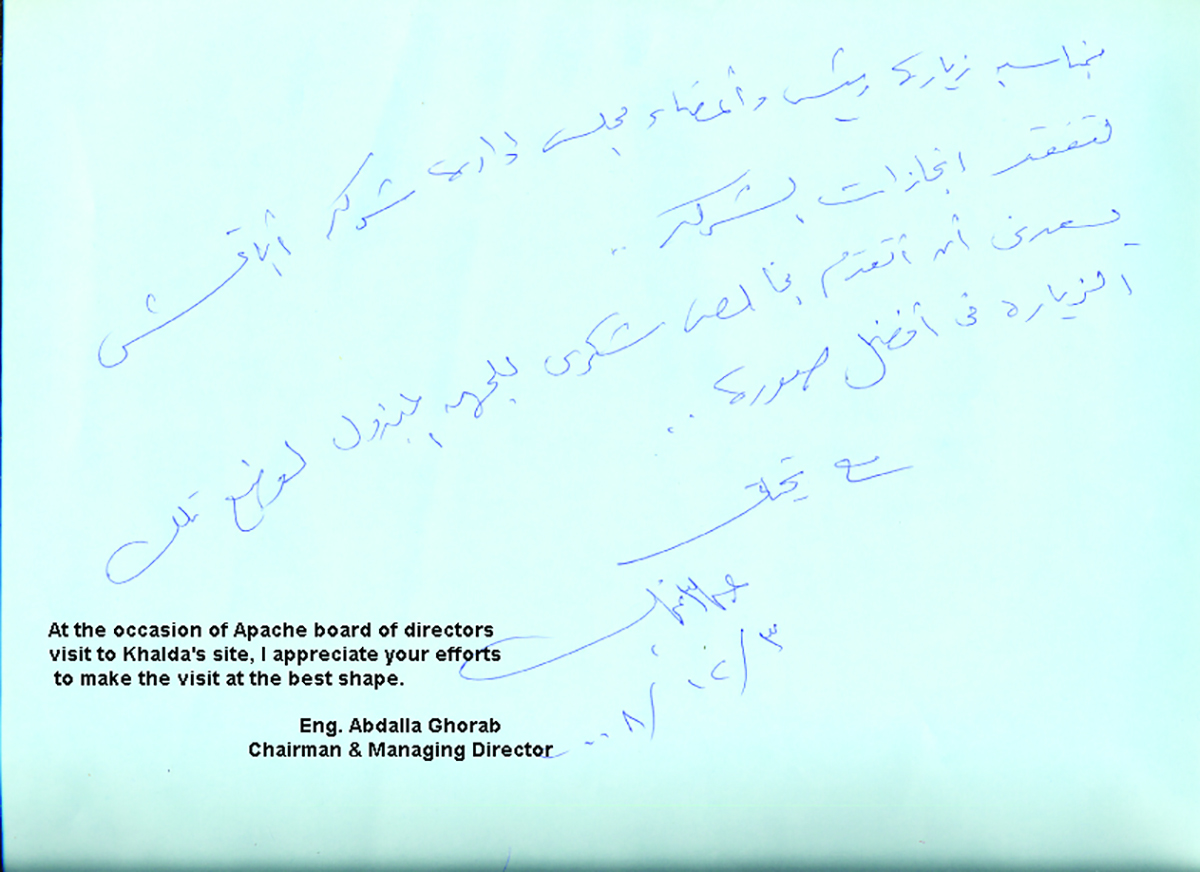 بمناسبه زيارة رئيس وأعضاء مجلس إدارة شركة أباتش
لتفقد انجازات الشركة ..
يسعدنى أن أتقدم بخالص شكرى لوضع تلك
الزيارة فى أفضل صورة ..
مع تحياتى
٣/١٢/٢٠٠٨
At the occasion of Apache board of directors
visit to Khalda's site, I appreciate your efforts
to make the visit at the best shape.
Eng. Abdalla Ghorab
Chairman & Managing Director